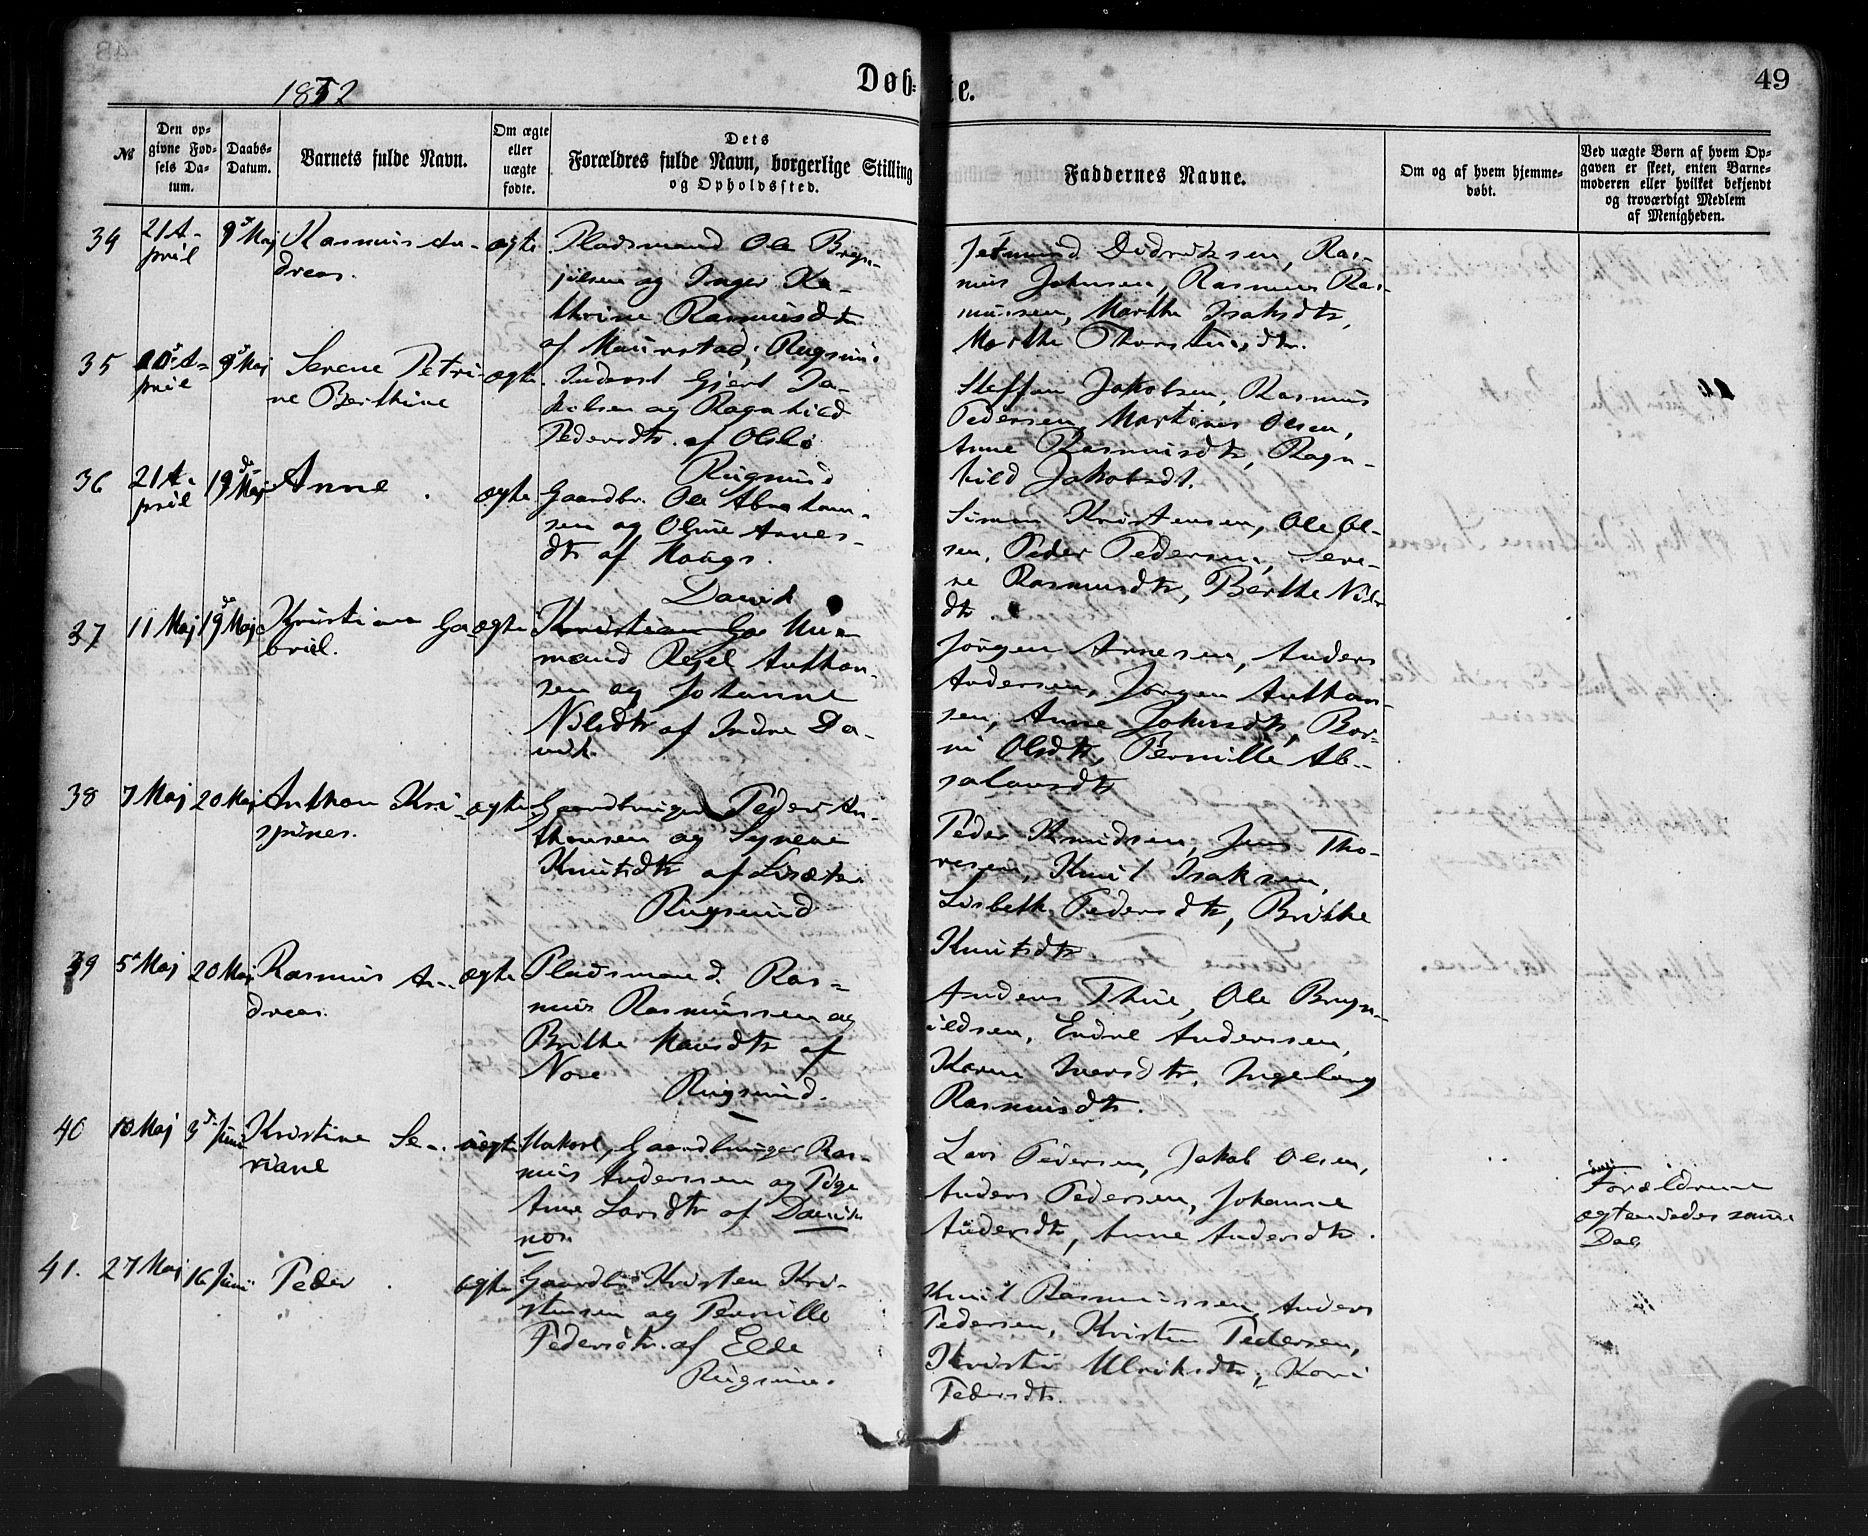 1872
Døb-
te.
49
№
Den op-
givne Fød-
sels Da-
tum.
Daabs-
Datum.
Barnets fulde Navn.
Om ægte
eller
uægte
fødte.
Dets
Forældres fulde Navn, borgerlige Stilling
og Opholdssted.
Faddernes Navne.
Om og af hvem hjemme-
døbt.
Ved uægte Børn af hvem Op-
gaven er skeet, enten Barne-
moderen eller hvilket bekjendt
og troværdigt Medlem
af Menigheden.
34
21 A-
pril
9de Maj
Rasmus An-
dreas.
ægte
Pladsmand Ole Bryn-
julsen og Inger Ka-
thrine Rasmusdtr
af Maurstad, Rugsund
Jetmund Didriksen, Ras-
mus Johnsen, Rasmus Ras-
mussen, Marthe Isaksdtr,
Marthe Thorsteinsdtr.
35
A-
pril
9de Maj
Serene Petri-
ne Berthine
ægte
Inderst Gjert Ja-
kobsen og Ragnhild
Pedersdtr. af
Rugsund
Steffen Jakobsen, Rasmus
Pedersen, Martinus Olsen,
Anne Rasmusdtr, Ragn-
hild Jakobsdt.
36
21 A-
pril
19de Maj
Anne
ægte
Gaardbr. Ole Abraham-
sen og Oline Annes-
dtr af Haugs.
Davik
Simon Kristensen, Ole Ol-
sen, Peder Pedersen, Sere-
ne Rasmusdtr, Berthe Nils-
dtr.
37
11 Maj
19de Maj
Kristian Ga-
briel.
ægte
Kristian Ga Huus-
mand Anthon-
sen og Johanne
Nilsdtr af Indre Da-
vik.
Jørgen Arnesen, Anders
Andersen, Jørgen Anthon-
sen, Anne Johnsdtr,
Olsdtr, Pernille Ab-
salonsdtr
38
7 Maj
20 Maj
Anthon Kri-
spines.
ægte
Gaardbruger Peder An-
thonsen og Synneve
Knutsdtr af Lisæter
Rugsund
Peder Knudsen, Jens Tho-
resen, Knut Isaksen,
Lisbeth Pedersdtr, Brithe
Knutsdtr
39
5 Maj
20 Maj
Rasmus An-
dreas.
ægte
Pladsmand Ras-
mus Rasmussen og
Brithe Hansdtr af
Nore
Rugsund.
Anders Thue, Ole Bryn-
ildsen, Endre Anderssen,
Karen Iversdtr, Ingeborg
Rasmusdtr.
40
10 Maj
3de Juni
Kristine Se-
riane
uægte
Gaardbruger Ras-
mus Anderssen og Pige
Anne Larsdtr af Davik
nor
Lars Pedersen, Jakob Olsen,
Anders Pedersen, Johanne
Andersdtr, Anne Andersdtr.
Forældrene
ægteviedes samme
Dag
41.
27 Maj
16 Juni
Peder
ægte
Gaardbr. Kristen Kri-
stensen og Pernille
Pedersdtr. af Elde
Rugsund.
Knut Rasmussen, Anders
Pedersen, Kristen Pedersen,
Kristi Ulriksdtr, Kari
Pedersdtr.